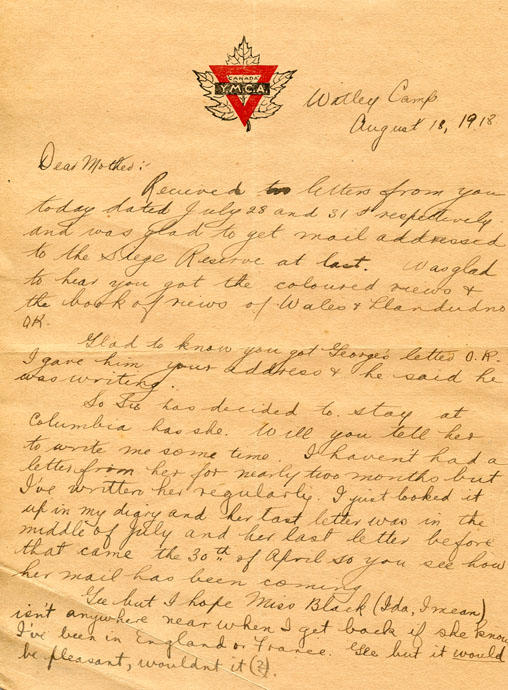 CANADA
Y.M.C.A.
Witley Camp
August 18, 1918
Dear Mother:-
Recived to letters from you
today dated July 28 and 31st respectively
and was glad to get mail addressed
to the Siege Reserve at last. Was glad
to hear you got the coloured views &
the book of views of Wales & Llandudno
OK.
Glad to know you got George's letter O.K.
I gave him your address & he said he
was writing.
So Sis has decided to stay at
Columbia has she. Will you tell her
to write me some time. I haven't had a
letter from her for nearly two months but
I've written her regularly. I just looked it
up in my diary and her last letter was in the
middle of July and her last letter before
that came the 30th of April so you see how
her mail has been coming
Gee but I hope Miss Black (Ida, I mean)
isn't anywhere near when I get back if she knows
I've been in England or France. Gee but it would
be pleasant, wouldnt it (?).